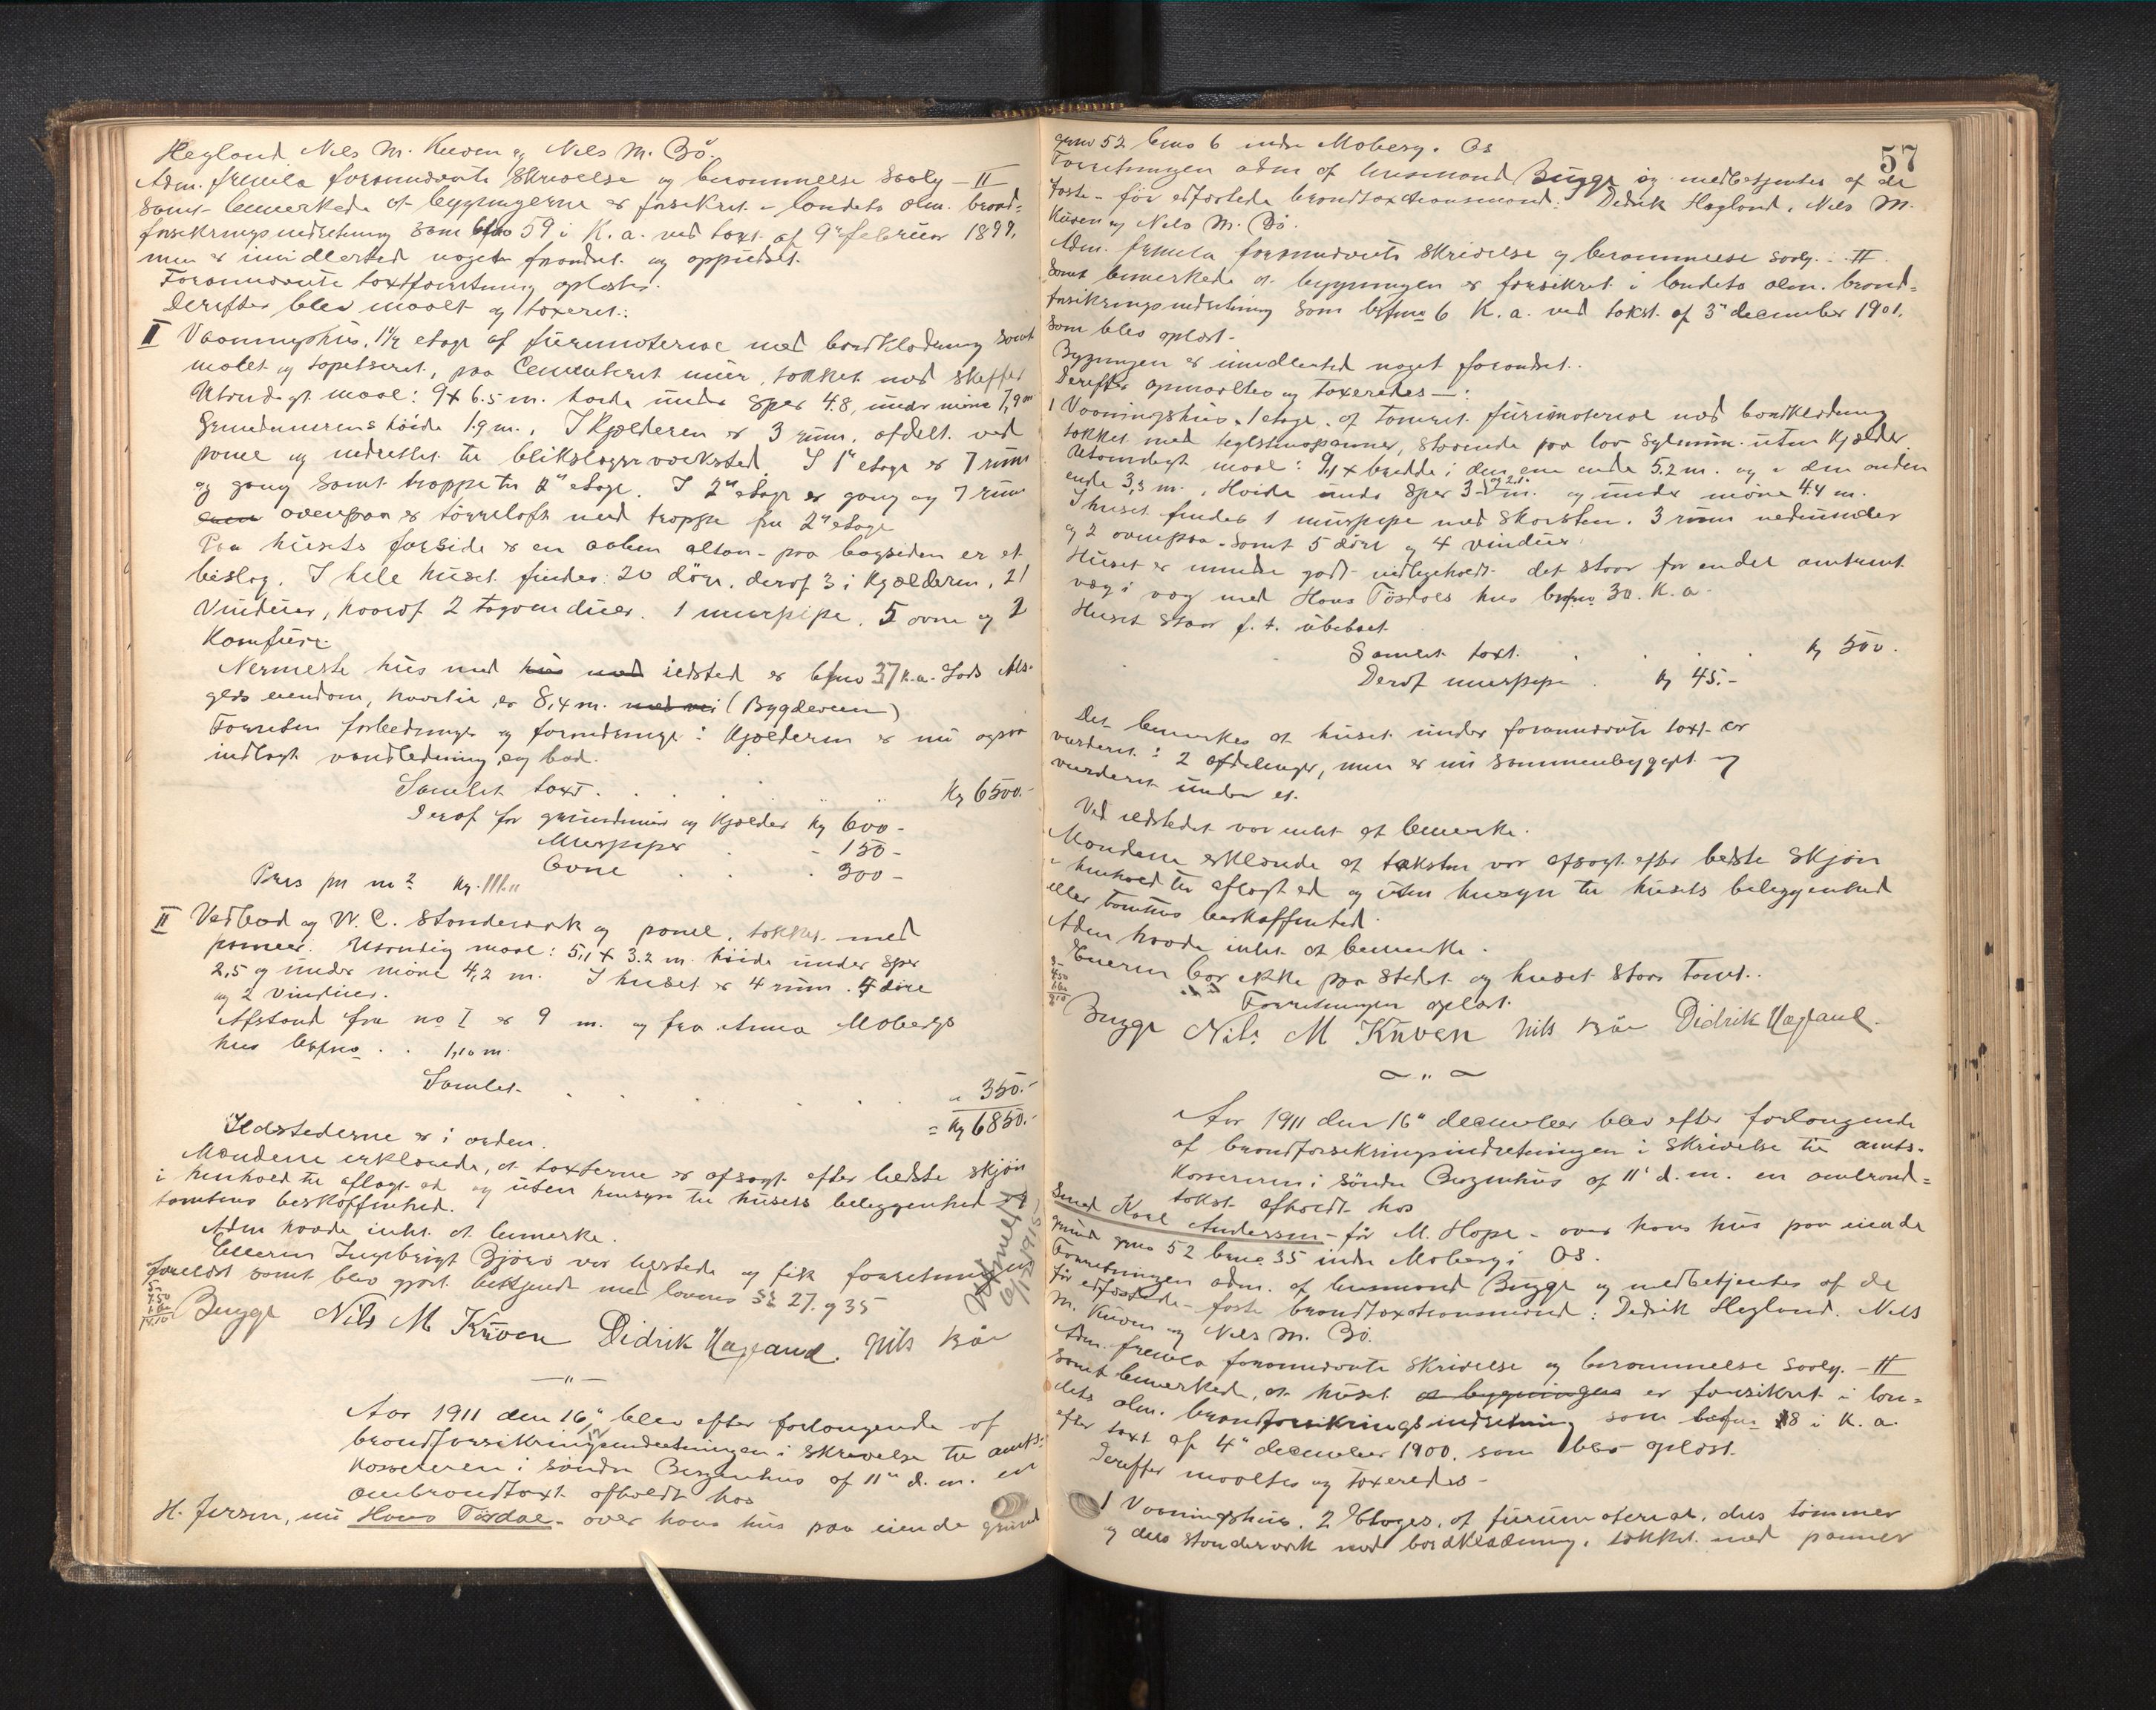 Hegland Nils M. Kuven og Nils M. Bö.
Adm. fremla forannævnte skrivelse og berammelse saaly - H
samt bemerkede at bygningerne er forsikret i landets alm. brand=
forsikringsindretning som bfno 59 i K. a. ved taxt af 9de februar 1899,
men er imidlertid noget forandret og oppudset.
Forannævnte taxtforretning oplæstes.
Derefter blev maalt og taxeret:
I Vaaningshus, 1½ etage af furumateriae med bordklædning samt
malet og tapetseret, paa Cementeret mur, tækket med skeffer
Utvendigt maal: 9 x 6.5 m. høide under sper 4.8, under møne 7,9 m
Grundmurens høide 1.9 m., I Kjælderen er 3 rum, afdelt ved
panel og indrettet til blikslagerverksted. I 1ste etage er 7 rum
og gang samt trappe til 2den etage. I 2den etage er gang og 7 rum
ovenpaa er tørreloft med trappe fra 2den etage
Paa husets forside er en aaben altan - paa bagsiden er et
bislag. I hele huset findes: 20 dører, deraf 3 i Kjælderen, 21
Vinduer, hvoraf 2 tagvinduer. 1 murpipe, 5 ovne og 2
Komfure.
Nermeste hus med hus med ildsted er bfno 37 K. a. Lars Als-
gers eiendom, hvortil er 8,4 m. med vei (Bygdeveien)
Foruten forbedringer og forandringer i Kjælderen er nu ogsaa
indlagt vandledning og bad.
Samlet taxt . . . . Kr 6500.-
Deraf for grundmur og Kjælder Kr 600 -
Murpiper . - 150 -
Ovne . . . 300 -
Pris pr m² Kr. 111.00
II Vedbod og W. C. Standerverk og panel, tækket med
panner. Utvendig maal: 5,1 x 3.2 m. høide under sper
2,5 og under møne 4,2 m. I huset er 4 rum. 4 døre
og 2 vinduer.
Afstand fra no I er 9 m. og fra Anna Mobergs
hus bfno . . 1,10 m.
Samlet . . . . . " 350.-
= Kr 6850.-
Ildstederne er i orden.
Mændene erklærede, at taxterne er afsagt efter bedste skjøn
i henhold til aflagt ed og uten hensyn til husets beleggenhed og
tomtens beskaffenhed.
Adm havde intet at bemerke.
Eieren Ingebrigt Björo var tilstede og fik forretningen
forelæst samt blev gjort bekjendt med lovens §§ 27. og 35
Bugge Nils M Kuven Didrik Hægland. Nils Bö
6/12 1915
— " —
Aar 1911 den 16de blev efter forlangende af
brandforsikringsindretningen i skrivelse til amts-
kassereren i søndre Bergenhus af 11te d. m. en
ombrandtaxt afholdt hos
H. Jersen, nu Hans Tøsdal - over hans hus paa eiende grund
57
gno 52 bno 6 indre Moberg. Os
Forretningen adm af lensmand Bugge og medbetjentes af de
faste - før edfæstede brandtaxtionsmænd: Didrik Hegland, Nils M.
Kuven og Nils M. Bö.
Adm. fremla forannævnte skrivelse og berammelse saaly. - H
samt bemerkede at bygningen er forsikret i landets alm. brand=
forsikringsindretning som bfno 6 K. a. ved takst af 3de december 1901,
som blev oplæst -
Bygningen er imidlertid noget forandret..
Derefter opmaaltes og taxeredes - :
1 Vaaningshus, 1 etage, af tømret furumateriae med bordklædning
tækket med teglstenspanner, staaende paa lav Sylmur uten Kjælder
Utvendigt maal: 9,1 x bredde i den ene ende 5.2 m. og i den anden
ende 3,3 m., Høide under sper 3- og 2.1 m. og under møne 4.4 m.
I huset findes 1 murpipe med skorsten. 3 rum nedunder
og 2 ovenpaa - samt 5 døre og 4 vinduer.
Huset er mindre godt vedligeholdt det staar for en del omtrent
væg i væg med Hans Tøsdals hus bfno 30. K. a.
Huset staar f. t. ubeboet
Samlet taxt . . . . Kr 500.
Deraf murpipe . Kr 45.-
Det bemerkes at huset under forannævnte taxt er
vurderet i 2 afdelinger, men er nu sammenbygget og
vurderet under et.
Ved ildstedet var intet at bemerke.
Mændene erklærede at taksten var afsagt efter bedste skjøn
i henhold til aflagt ed og uten hensyn til husets beleggenhed
eller tomtens beskaffenhed.
Adm havde intet at bemerke.
Eieren bor ikke paa stedet og huset staar tomt..
Forretningen oplæst.
Bugge Nils M Kuven Nils Bö Didrik Hægland.
~ " ~
Aar 1911 den 16de december blev efter forlangende
af brandforsikringsindretningen i skrivelse til amts-
kassereren i søndre Bergenhus af 11te d. m. en ombrand=
takst afholdt hos
Smed Noel Anderssen - før M. Hope - over hans hus paa eiende
grund gno 52 bno 35 indre Moberg i Os.
Forretningen adm. af lensmand Bugge og medbetjentes af de
før edfæstede - faste brandtaxtionsmænd: Didrik Hegland. Nils
M. Kuven og Nils M. Bö.
Adm. fremla forannævnte skrivelse og berammelse saaly. - H
samt bemerkede, at huset at bygningen er forsikret i lan=
dets alm. brandforsikringsindretning som bfno 18 i K. a.
efter taxt af 4de december 1900, som blev oplæst.
Derefter maaltes og taxeredes -
1 Vaaningshus, 2 Etages, af furumateriae, dels tømmer
og dels standerverk med bordklædning, tækket med panner